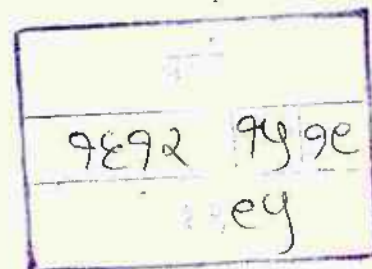 १६१२ १५ १९
९५